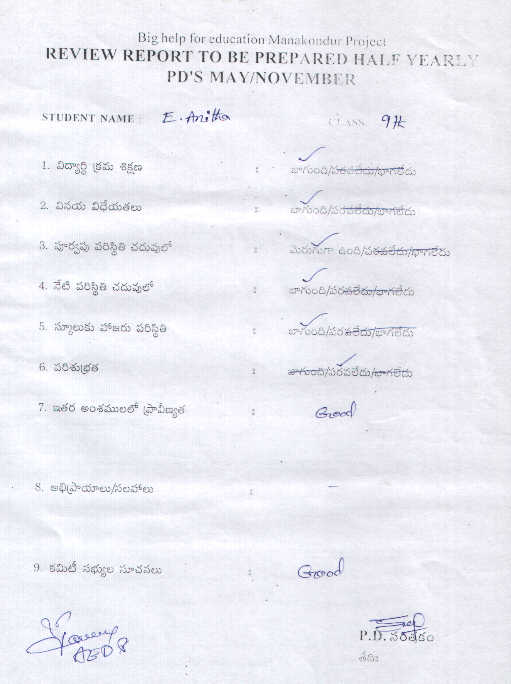 Big help for education Manakondur Project
REVIEW REPORT TO BE PREPARED HALF YEARLY
PD'S MAY/NOVEMBER
STUDENT NAME : E. Anitha CLASS 9th
1. విద్యార్థి క్రమ శిక్షణ : బాగుంది/పరవలేదు/బాగలేదు
2. వినయ విధేయతలు : బాగుంది/పరవలేదు/బాగలేదు
3. పూర్వపు పరిస్థితి చదువులో : మెరుగుగా ఉంది/పరవలేదు/బాగలేదు
4. నేటి పరిస్థితి చదువులో : బాగుంది/పరవలేదు/బాగలేదు
5. స్కూలుకు హాజరు పరిస్థితి : బాగుంది/పరవలేదు/బాగలేదు
6. పరిశుభ్రత : బాగుంది/పరవలేదు/బాగలేదు
7. ఇతర అంశములలో ప్రావీణ్యత : Good
8. అభిప్రాయాలు/సలహాలు : —
9. కమిటీ సభ్యుల సూచనలు : Good
P.D. సంతకం
తేది: